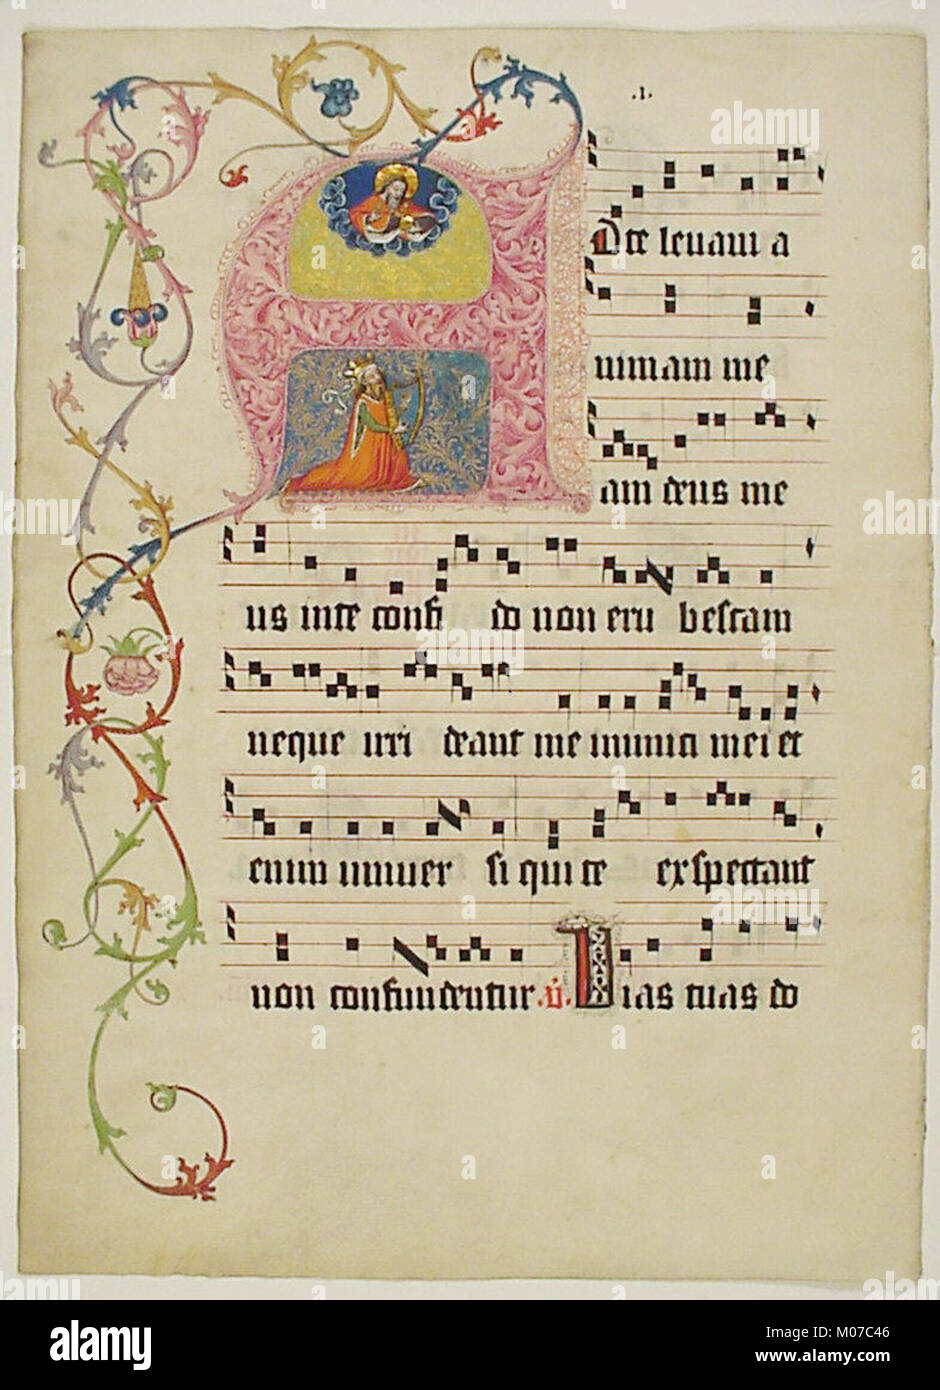 .1.
A
Dte levavi a
nimam me
am deus me
us in te confi do non eru bescam
neque irri deant me inimici mei et
enim univer si qui te exspectant
non confundentur .V. Vias tuas do
alamy
Image ID: M07C46
www.alamy.com